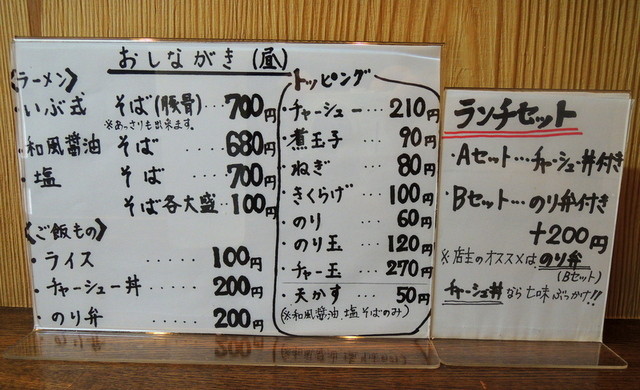 おしながき (昼)
〈ラーメン〉
・いぶ式 そば(豚骨)…700円
※あっさりも出来ます。
・和風醤油 そば……680円
・塩 そば……700円
そば各大盛…100円
〈ご飯もの〉
・ライス……100円
・チャーシュー丼……200円
・のり弁……200円
トッピング
・チャーシュー…210円
・煮玉子……90円
・ねぎ……80円
・きくらげ……100円
・のり……60円
・のり玉……120円
・チャー玉……270円
・天かす……50円
(※和風醤油、塩そばのみ)
ランチセット
・Aセット…チャーシュー丼付き
・Bセット…のり弁付き
+200円
※店主のオススメはのり弁
(Bセット)
チャーシュ丼なら七味ぶっかけ!!